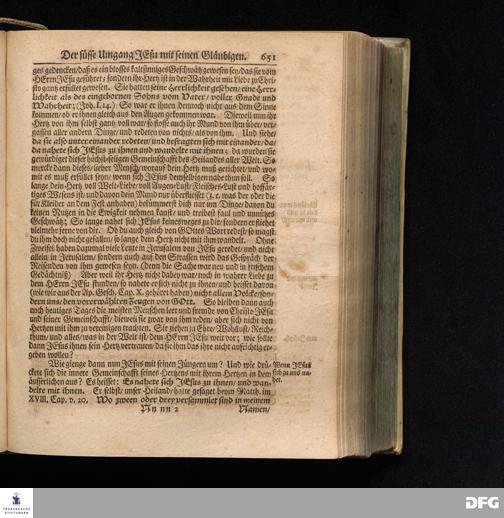 Der süsse Umgang JEsu mit seinen Gläubigen. 651
ges gedencken/ daß es ein blosses kaltsinniges Geschwätz gewesen sey/ das sie vom
HErrn JEsu geführet; sondern ihr Hertz ist in der Wahrheit mit Liebe zu Chri-
sto gantz erfüllet gewesen. Sie hatten seine Herrlichkeit gesehen/ eine Herr-
lichkeit als des eingebornen Sohns vom Vater/ voller Gnade und
Wahrheit; (Joh. I, 14.) So war er ihnen dennoch nicht aus dem Sinne
kommen/ ob er ihnen gleich aus den Augen gekommen war. Dieweil nun ihr
Hertz von ihm selbst gantz voll war/ so flosse auch ihr Mund von ihm über/ ver-
gassen aller andern Dinge/ und redeten von nichts/ als von ihm. Und siehe/
da sie also unter einander redeten/ und befragten sich mit einander/ da/
da nahete sich JEsus zu ihnen und wandelte mit ihnen; da wurden sie
gewürdiget dieser höchst-seligen Gemeinschafft des Heilandes aller Welt. So
mercke dann dieses/ lieber Mensch/ worauf dein Hertz muß gerichtet/ und wo-
mit es muß erfüllet seyn/ wenn sich JEsus demselbigen nahe thun soll. So
lange dein Hertz voll Welt-Liebe/ voll Augen-Lust/ Fleisches-Lust und hoffär-
tiges Wesens ist/ und davon dein Mund nun überfliesset (z. e. was der oder die
für Kleider an dem Fest anhaben) bekümmerst dich nur um Dinge/ davon du
keinen Nutzen in die Ewigkeit nehmen kanst/ und treibest faul und unnützes
Geschwätz; So lange nahet sich JEsus keinesweges zu dir/ sondern er fliehet
vielmehr ferne von dir. Ob du auch gleich von GOttes Wort redest/ so magst
du ihm doch nicht gefallen/ so lange dein Hertz nicht mit ihm wandelt. Ohne
Zweifel haben dazumal viele Leute in Jerusalem von JEsu geredet/ und nicht
allein in Jerusalem/ sondern auch auf den Strassen wird das Gespräch der
Reisenden von ihm gewesen seyn. (denn die Sache war neu und in frischem
Gedächtniß) Aber weil ihr Hertz nicht dabey war/ noch in wahrer Liebe zu
dem HErrn JEsu stunden/ so nahete er sich nicht zu ihnen/ und heisset davon
(wie wir aus der Ap. Gesch. Cap. X. gehöret haben) nicht allem Volcke/ son-
dern uns/ den vorerwählten Zeugen von GOtt. So bleiben dann auch
noch heutiges Tages die meisten Menschen leer und fremde von Christo JEsu
und seiner Gemeinschafft/ dieweil sie zwar von ihm reden/ aber sich nicht von
Hertzen mit ihm zu vereinigen trachten. Sie ziehen ja Ehre/ Wohllust/ Reich-
thum/ und alles/ was in der Welt ist/ dem HErrn JEsu weit vor; wie sollte
dann JEsus ihnen sein Hertz vertrauen/ da sie ihm das ihre nicht aufrichtig er-
geben wollen?
Wie gienge dann nun JEsus mit seinen Jüngern um? Und wie drü-
ckete sich die innere Gemeinschafft seines Hertzens mit ihrem Hertzen in dem
äusserlichen aus? Es heisset: Es nahete sich JEsus zu ihnen/ und wan-
delte mit ihnen. Er selbst/ unser Heiland/ hatte gesaget beym Matth. in
XVIII, Cap. v. 20. Wo zween oder drey versammlet sind in meinem
Wenn JEsus
sich zu uns na-
het.
Nn nn 2 Namen/
FRANCKESCHE
STIFTUNGEN
DFG